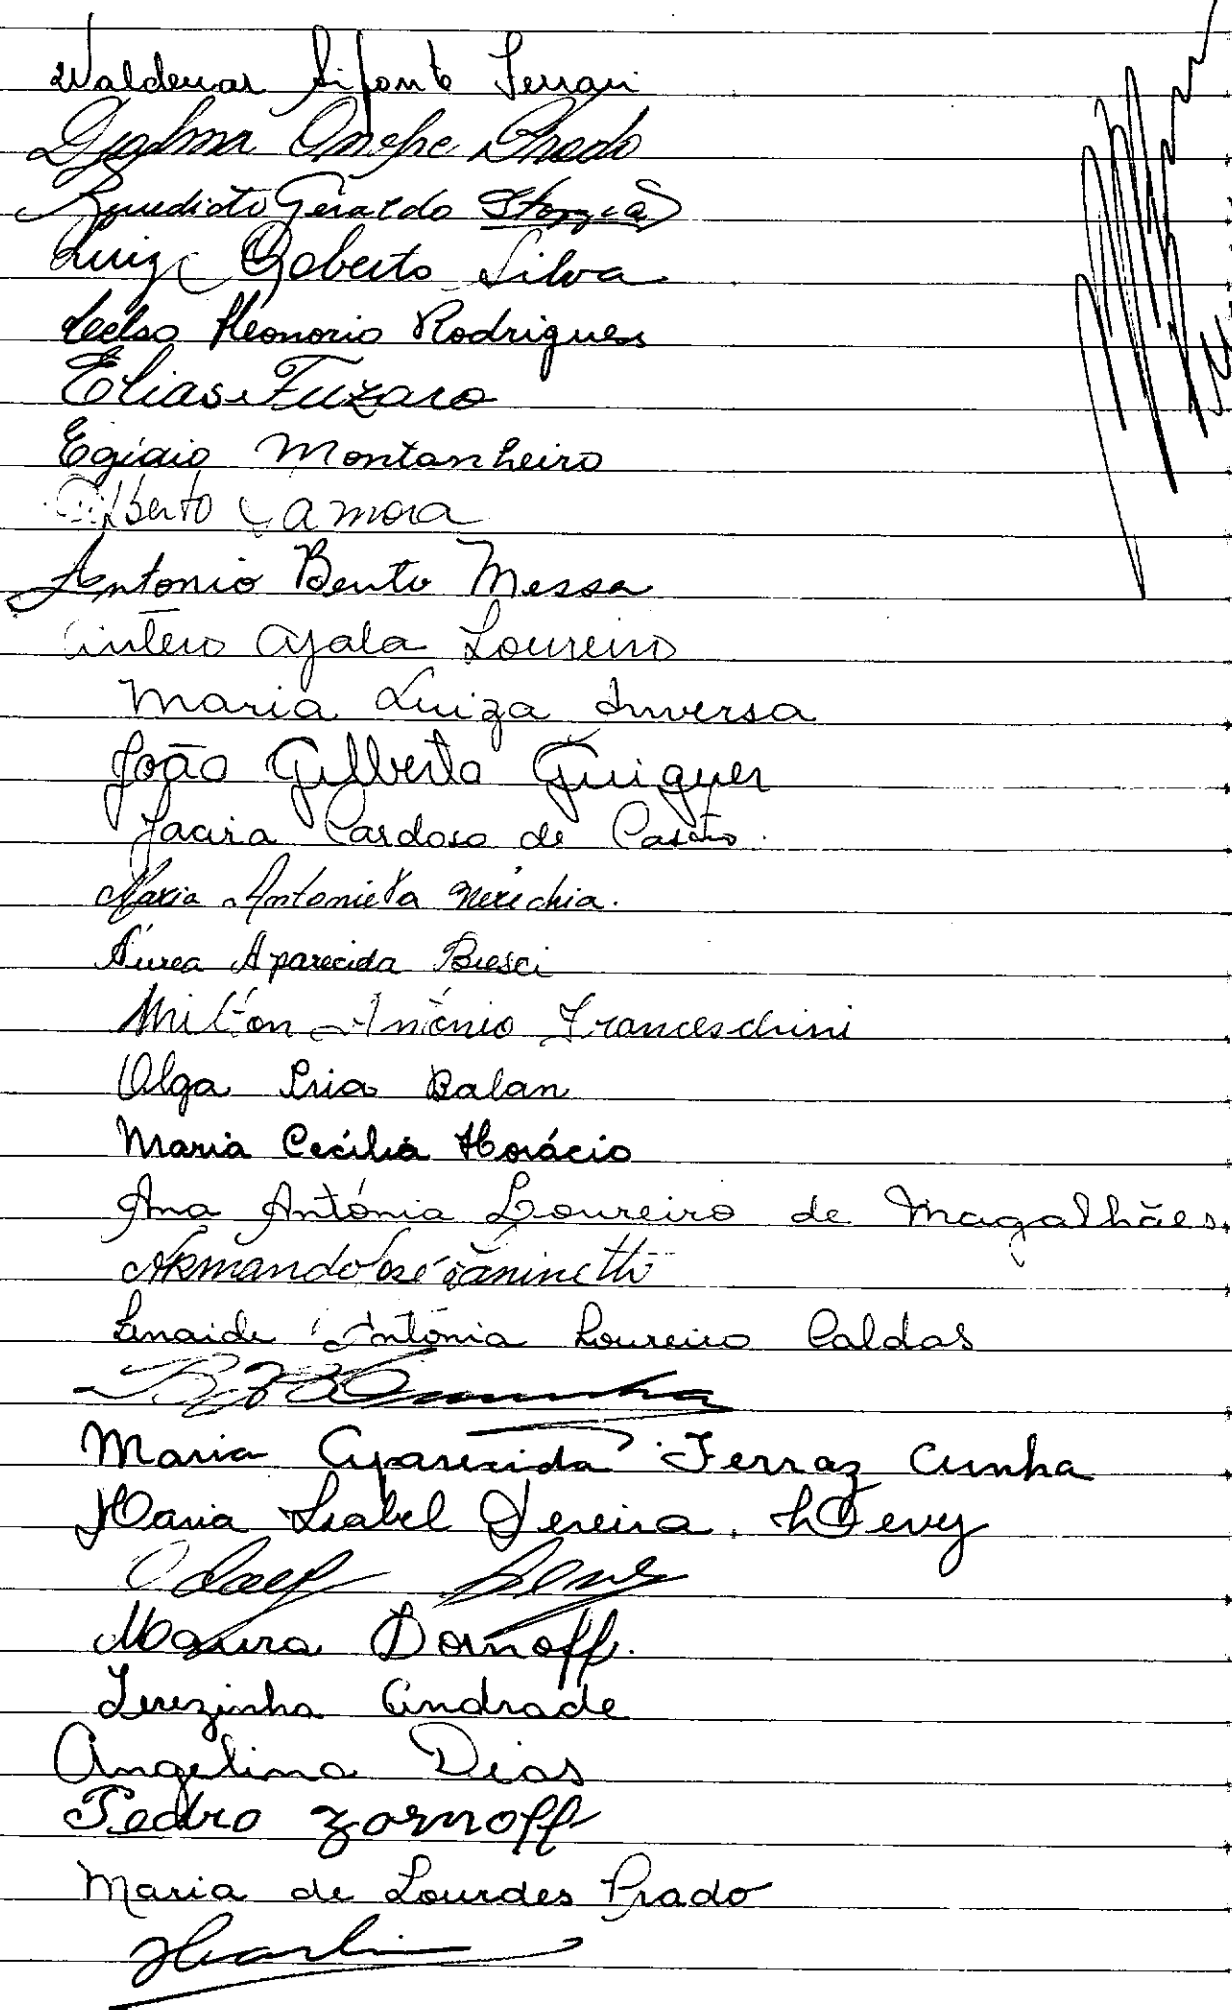 Waldemar Sifonte Ferrari
Djalma Onofre Prado
Benedicto Geraldo
Luiz Roberto Silva
Celso Honorio Rodrigues
Elias Fuzaro
Egidio Montanheiro
Alberto Camora
Antonio Bento Messa
Antero Ayala Loureiro
Maria Luiza Inversa
João Gilberto Guiguer
Jacira Cardoso de Castro.
Maria Antonieta
Áurea Aparecida Bresci
Milton Antônio Franceschini
Olga Pria Balan
Maria Cecília Horácio
Ana Antónia Loureiro de Magalhães
Armando José Zaninetti
Zenaide Antônia Loureiro Caldas
Maria Aparecida Ferraz Cunha
Maria Isabel Pereira Levy
Levy
Maura Dornoff.
Terezinha Andrade
Angelina Dias
Pedro Zornoff
Maria de Lourdes Prado